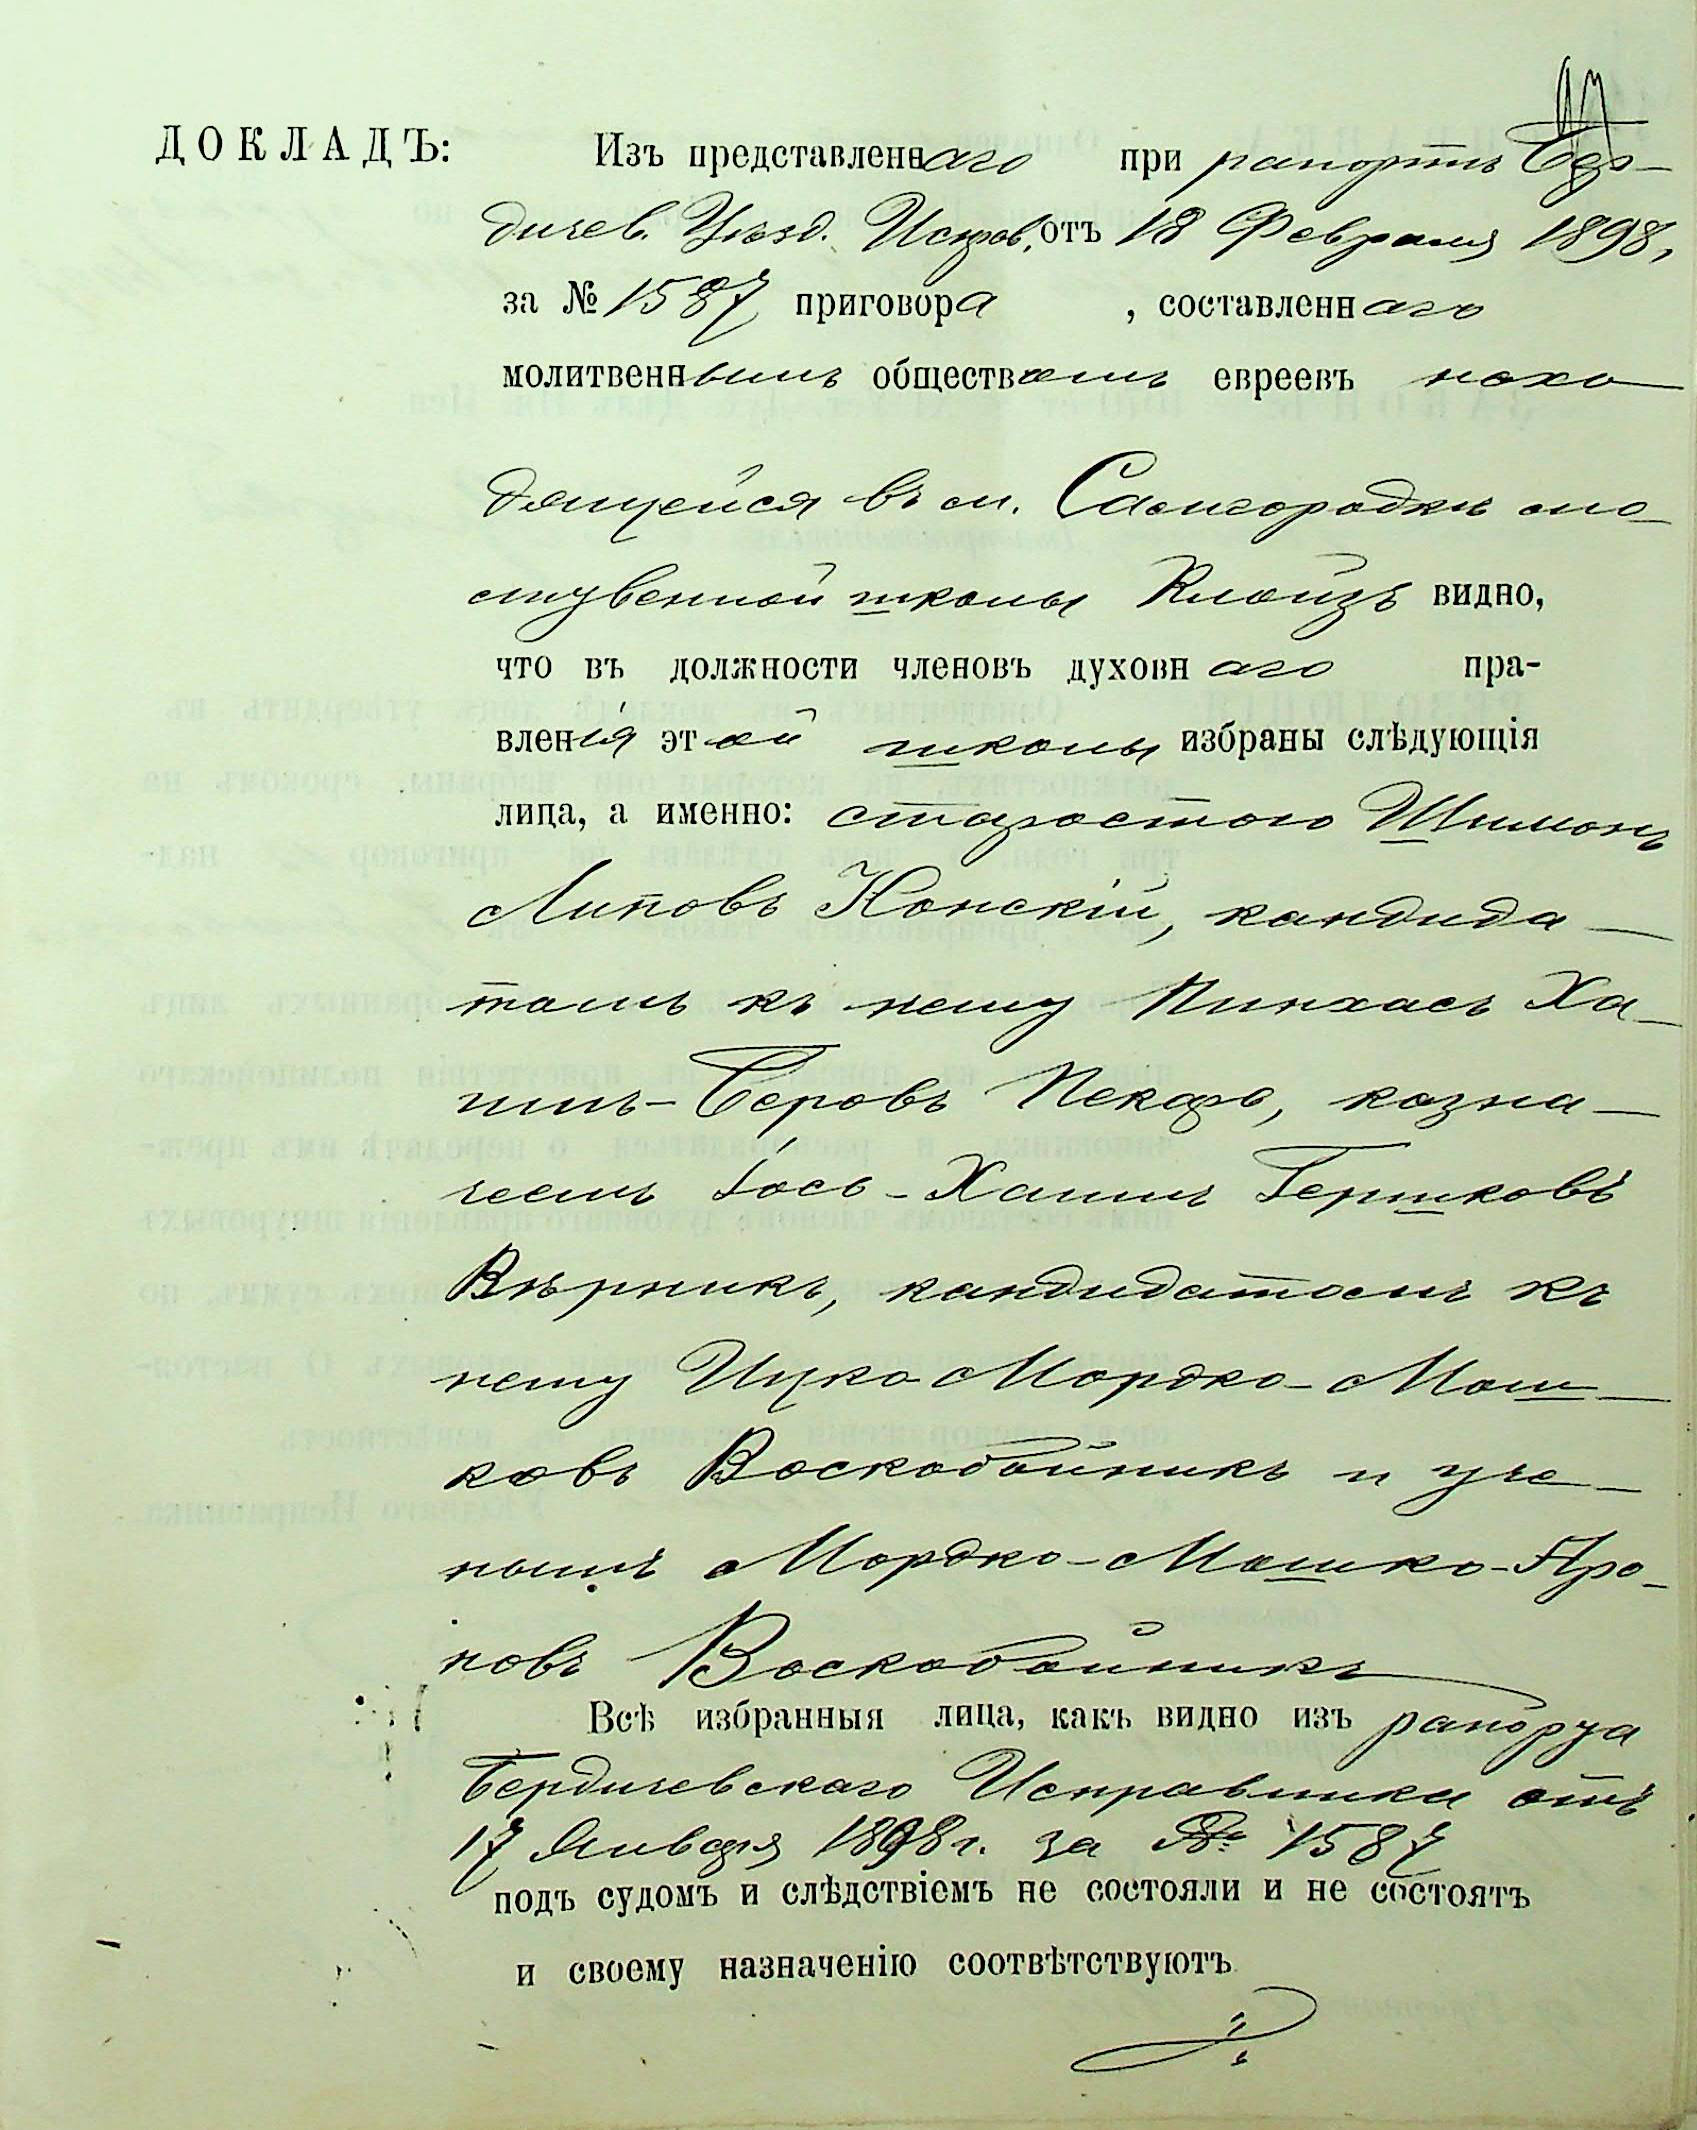 ДОКЛАДЪ: Изъ представленнаго при рапортѣ Бер-
дичев. Уѣзд. Исправ. отъ 18 Февраля 1898,
за № 1587 приговора , составленнаго
молитвеннымъ обществомъ евреевъ нахо
дящейся въ м. Самгородкѣ мо-
литвенной школы Клойзъ видно,
что въ должности членовъ духовнаго пра-
вленія этой школы избраны слѣдующія
лица, а именно: старостою Шимонъ
Липовъ Конскій, кандида-
томъ къ нему Пинхасъ Ха-
имъ-Беровъ Пекарь, казна-
чеемъ Іось-Хаимъ Гершковъ
Вѣрникъ, кандидатомъ къ
нему Ицко Мордко-Мош-
ковъ Воскобойникъ и уче-
нымъ Мордко-Мошко-Аро-
новъ Воскобойникъ
Всѣ избранныя лица, какъ видно изъ рапорта
Бердичевскаго Исправника отъ
17 Января 1898 г. за № 1587
подъ судомъ и слѣдствіемъ не состояли и не состоятъ
и своему назначенію соотвѣтствуютъ